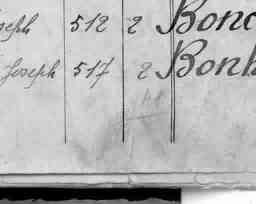 oseph 512 2 Bonc
Joseph 517 2 Bonh